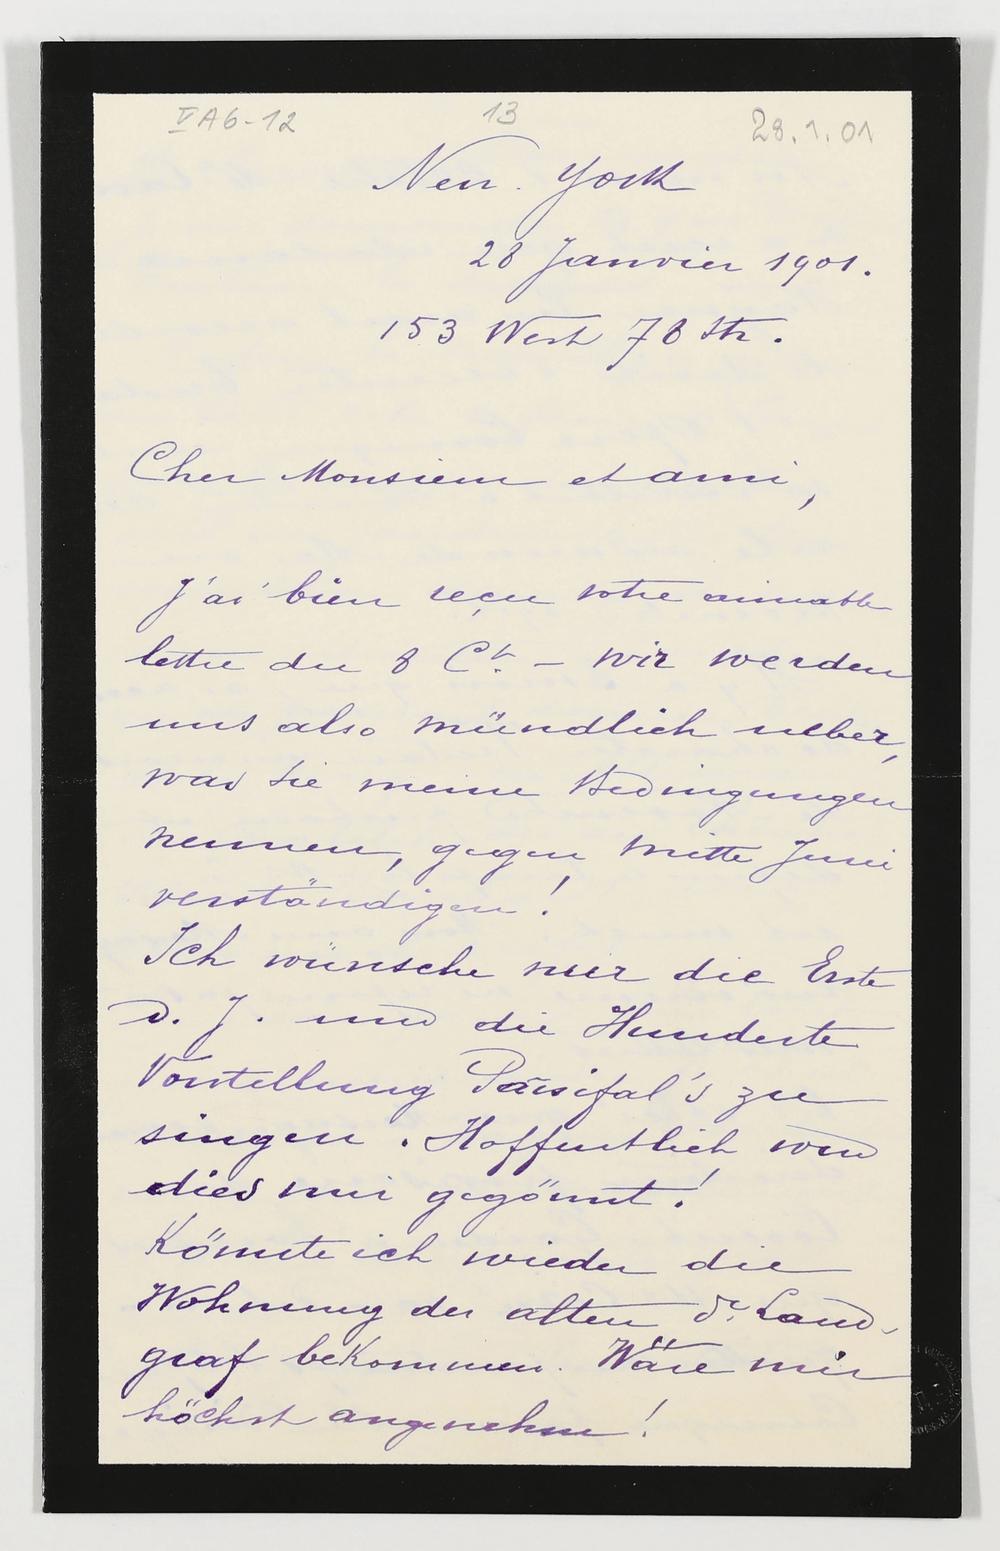 V A 6-12
13
28.1.01
New. York
28 Janvier 1901.
153 West 78 Str.
Cher Monsieur et ami,
J'ai bien reçu votre aimable
lettre du 8 Ct. – wir werden
uns also mündlich ueber,
was Sie meine Bedingungen
nennen, gegen Mitte Juni
verständigen!
Ich wünsche mir die Erste
d. J. und die Hunderte
Vorstellung Parsifal's zu
singen. Hoffentlich wird
dies mir gegönnt!
Könnte ich wieder die
Wohnung der alten Dr. Land-
graf bekommen. Wäre mir
höchst angenehm!